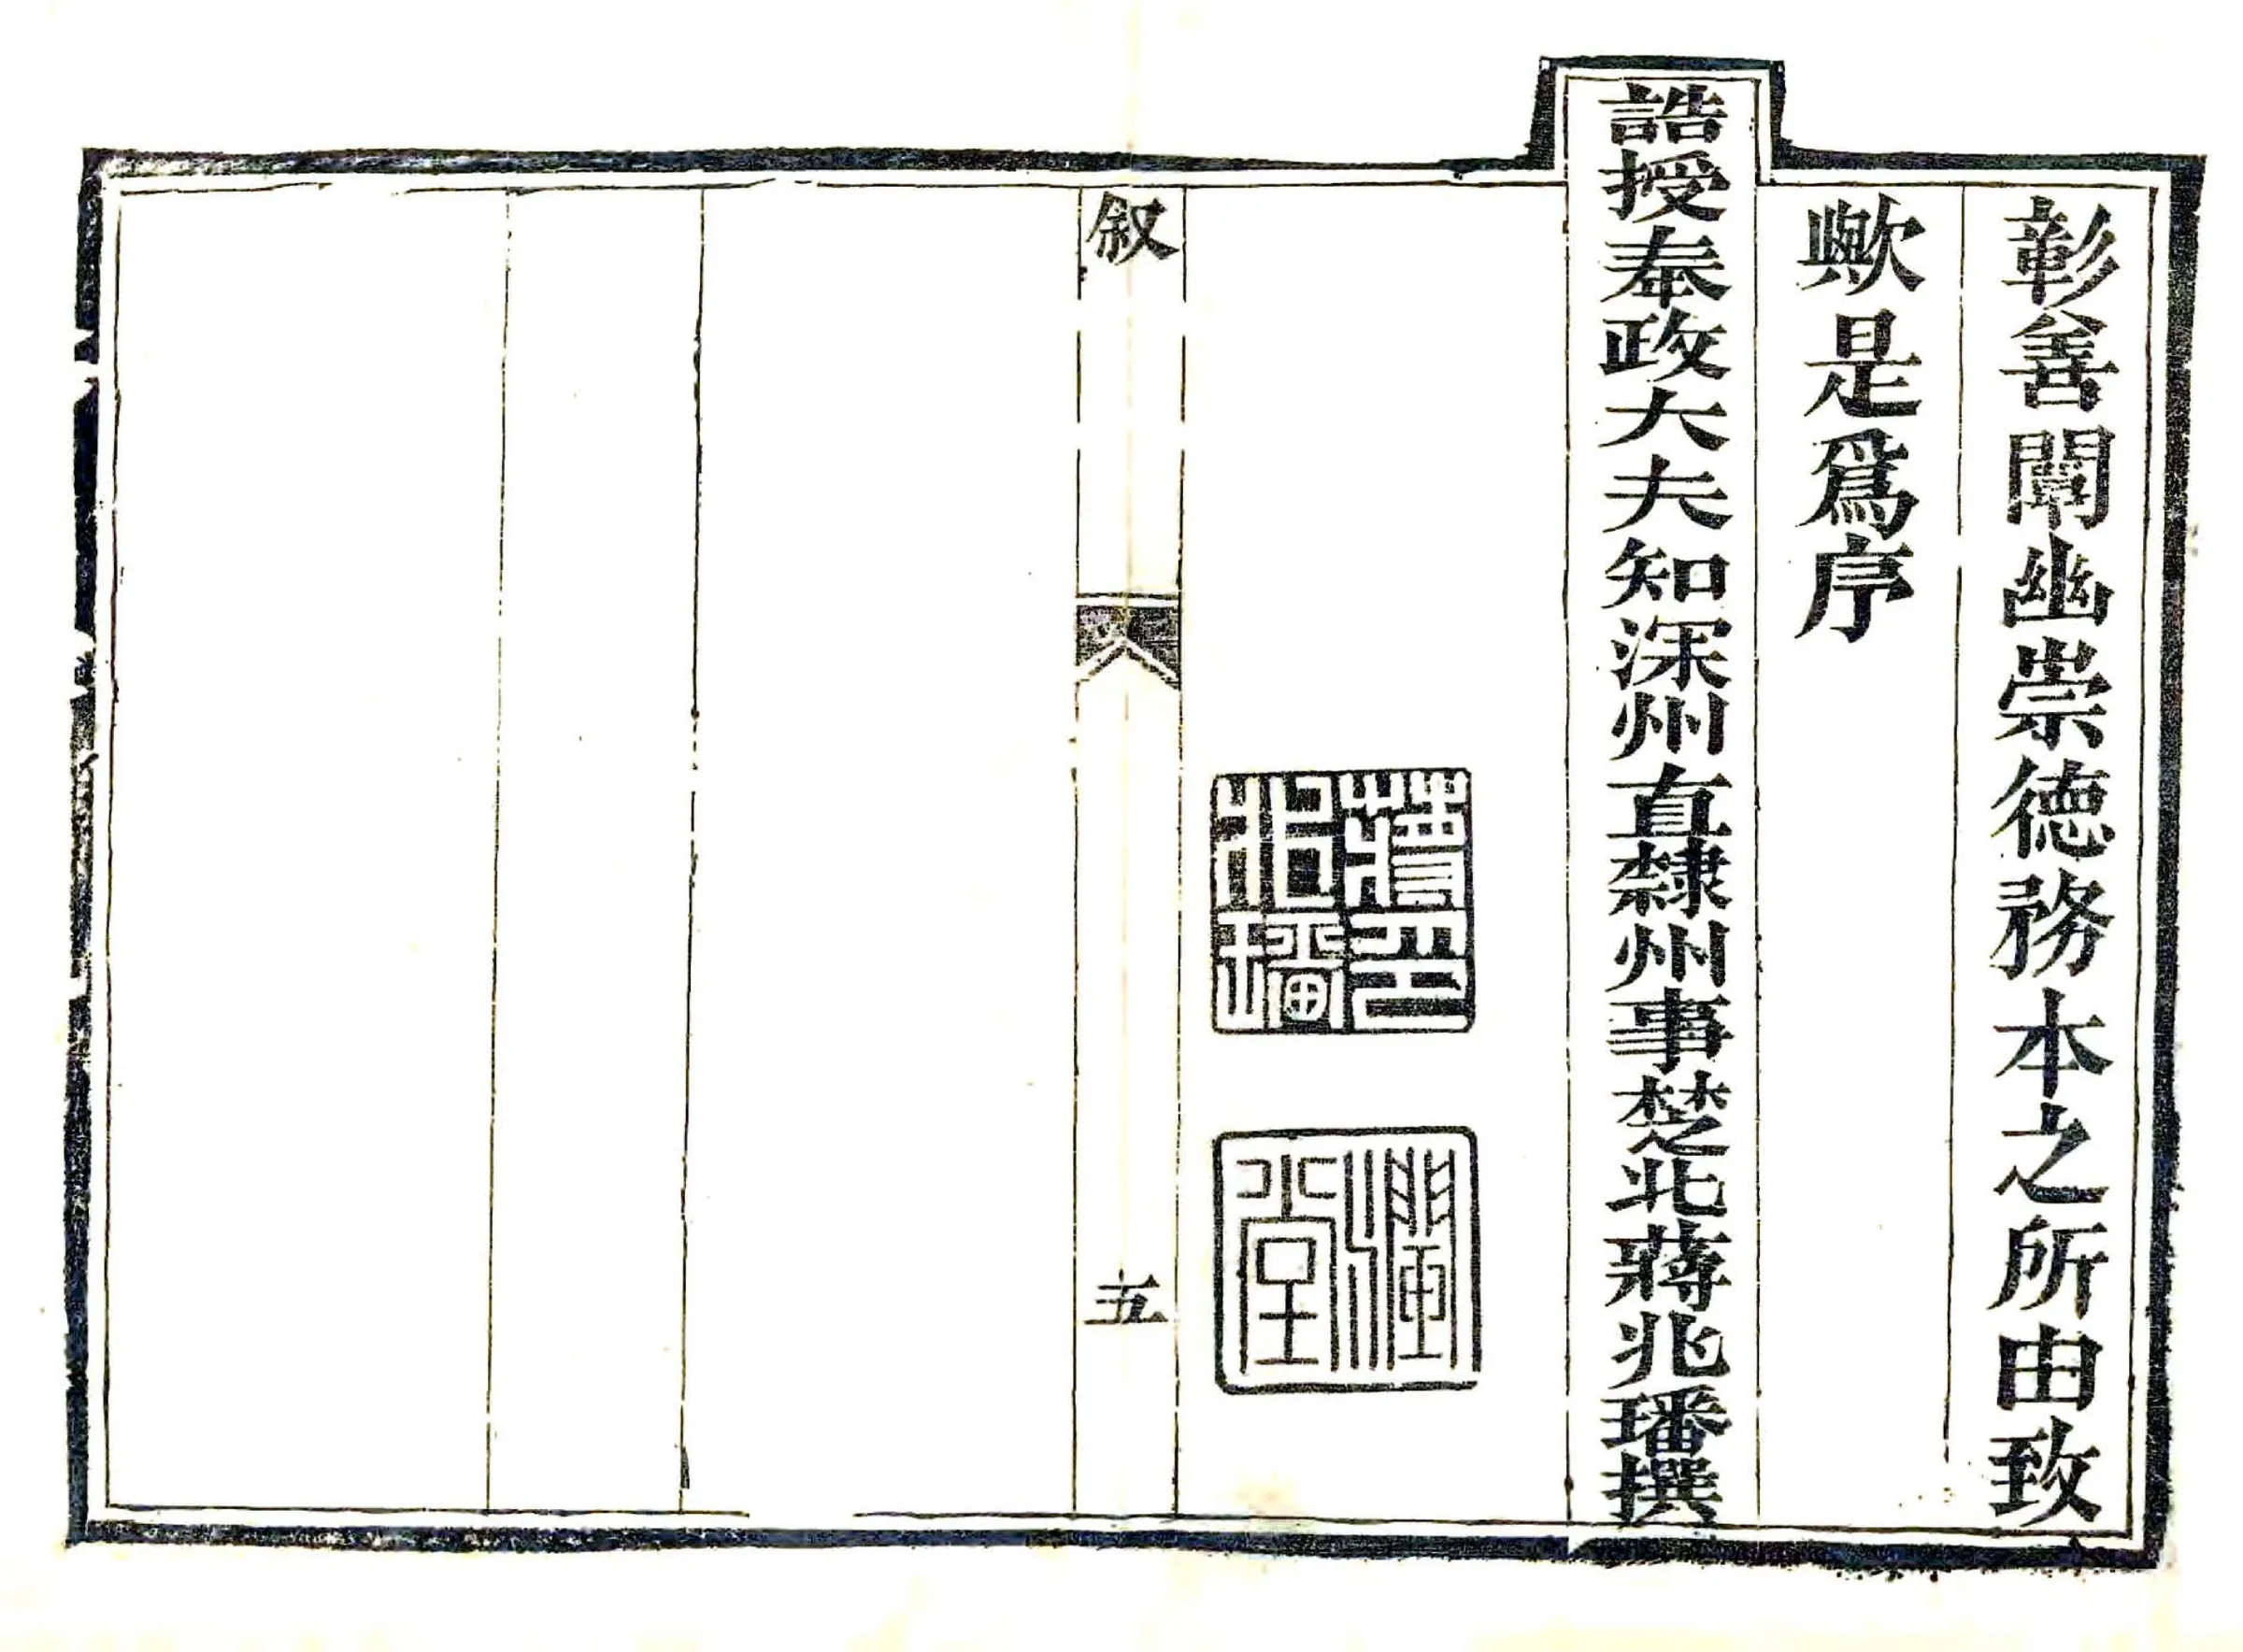 彰善闡幽崇德務本之所由致
歟是爲序
誥授奉政大夫知深州直隸州事楚北蔣兆璠撰
蔣印兆璠
澗堂
叙
五